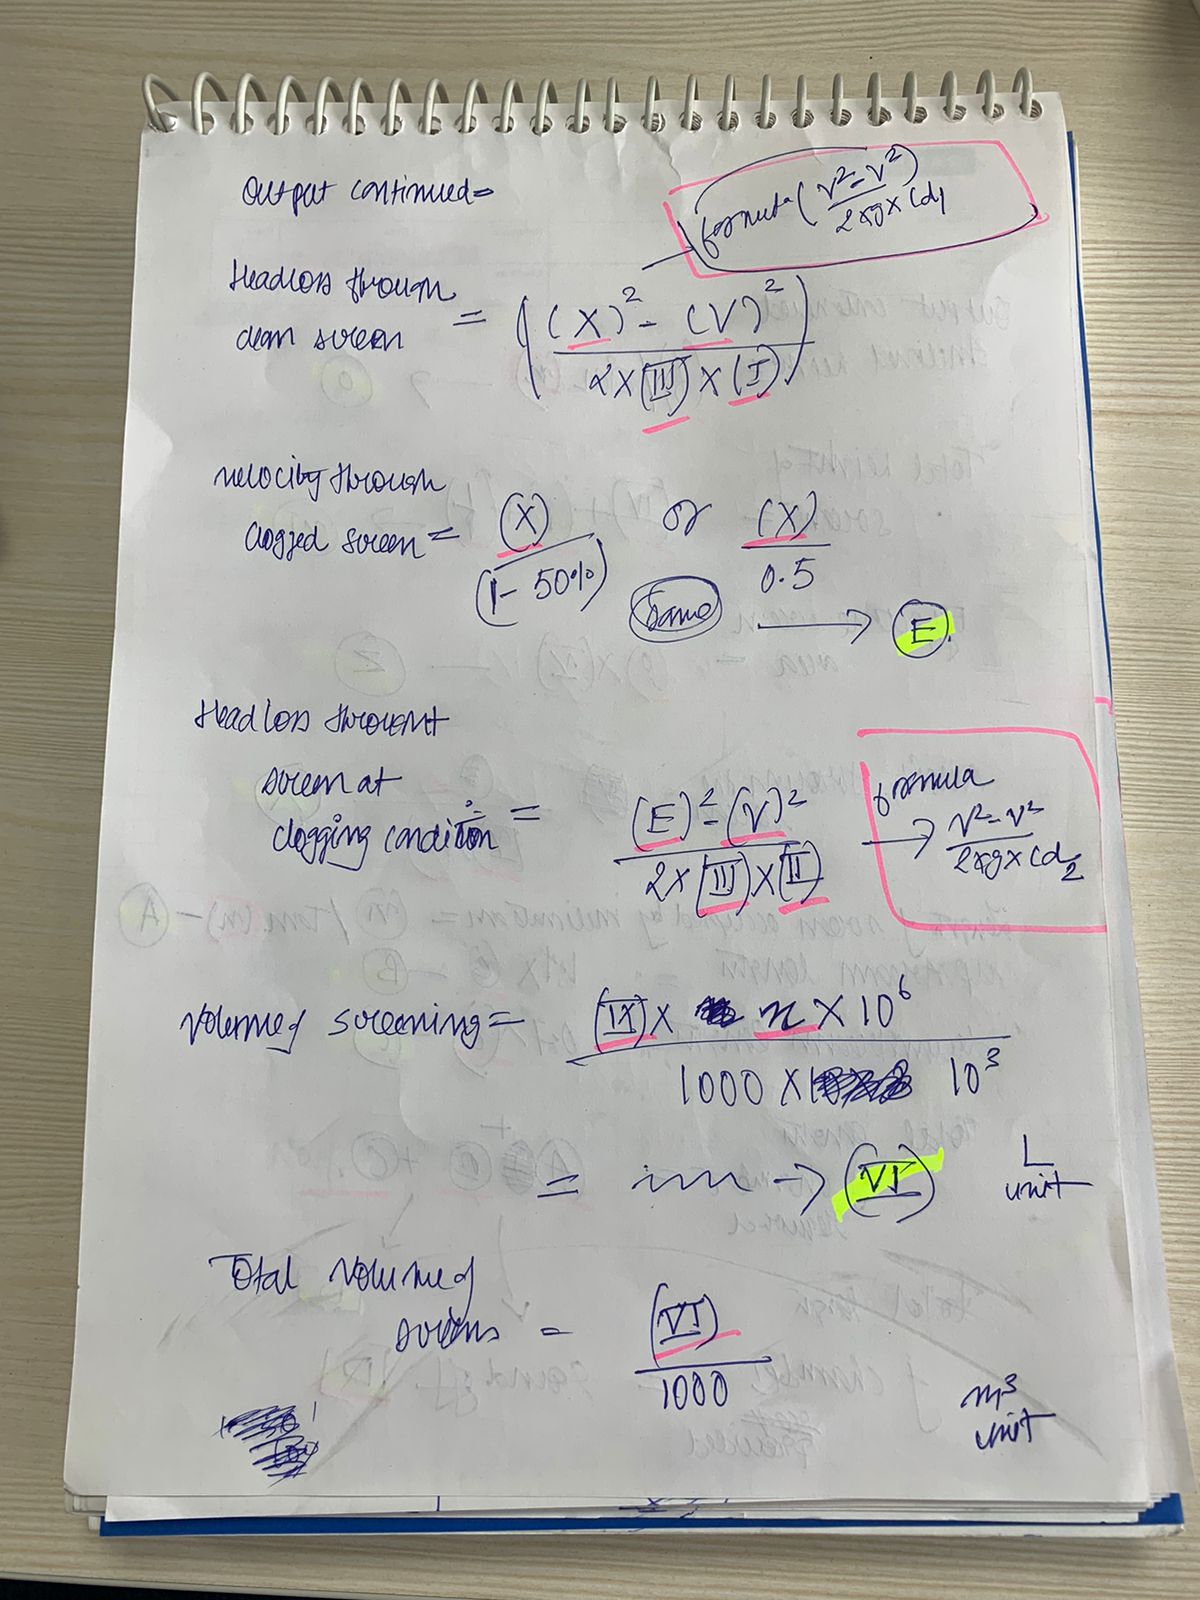 Output continued=
formula (V²-v²)
2xgxCd₁
Headloss through
clean screen = ((X)² - (V)²)
2 x (III) x (I)
velocity through
clogged screen = (X) or (X)
(1-50%) 0.5
Same → E.
Headloss throught
screen at
clogging condition = (E)² - (V)²
2 x (III) x (II)
formula
→ V²-v²
2xgxCd₂
Volume of screening = (IX) x n x 10⁶
1000 x 10³
= → (VI) L
unit
Total volume of
= (VI)
1000
m³
unit